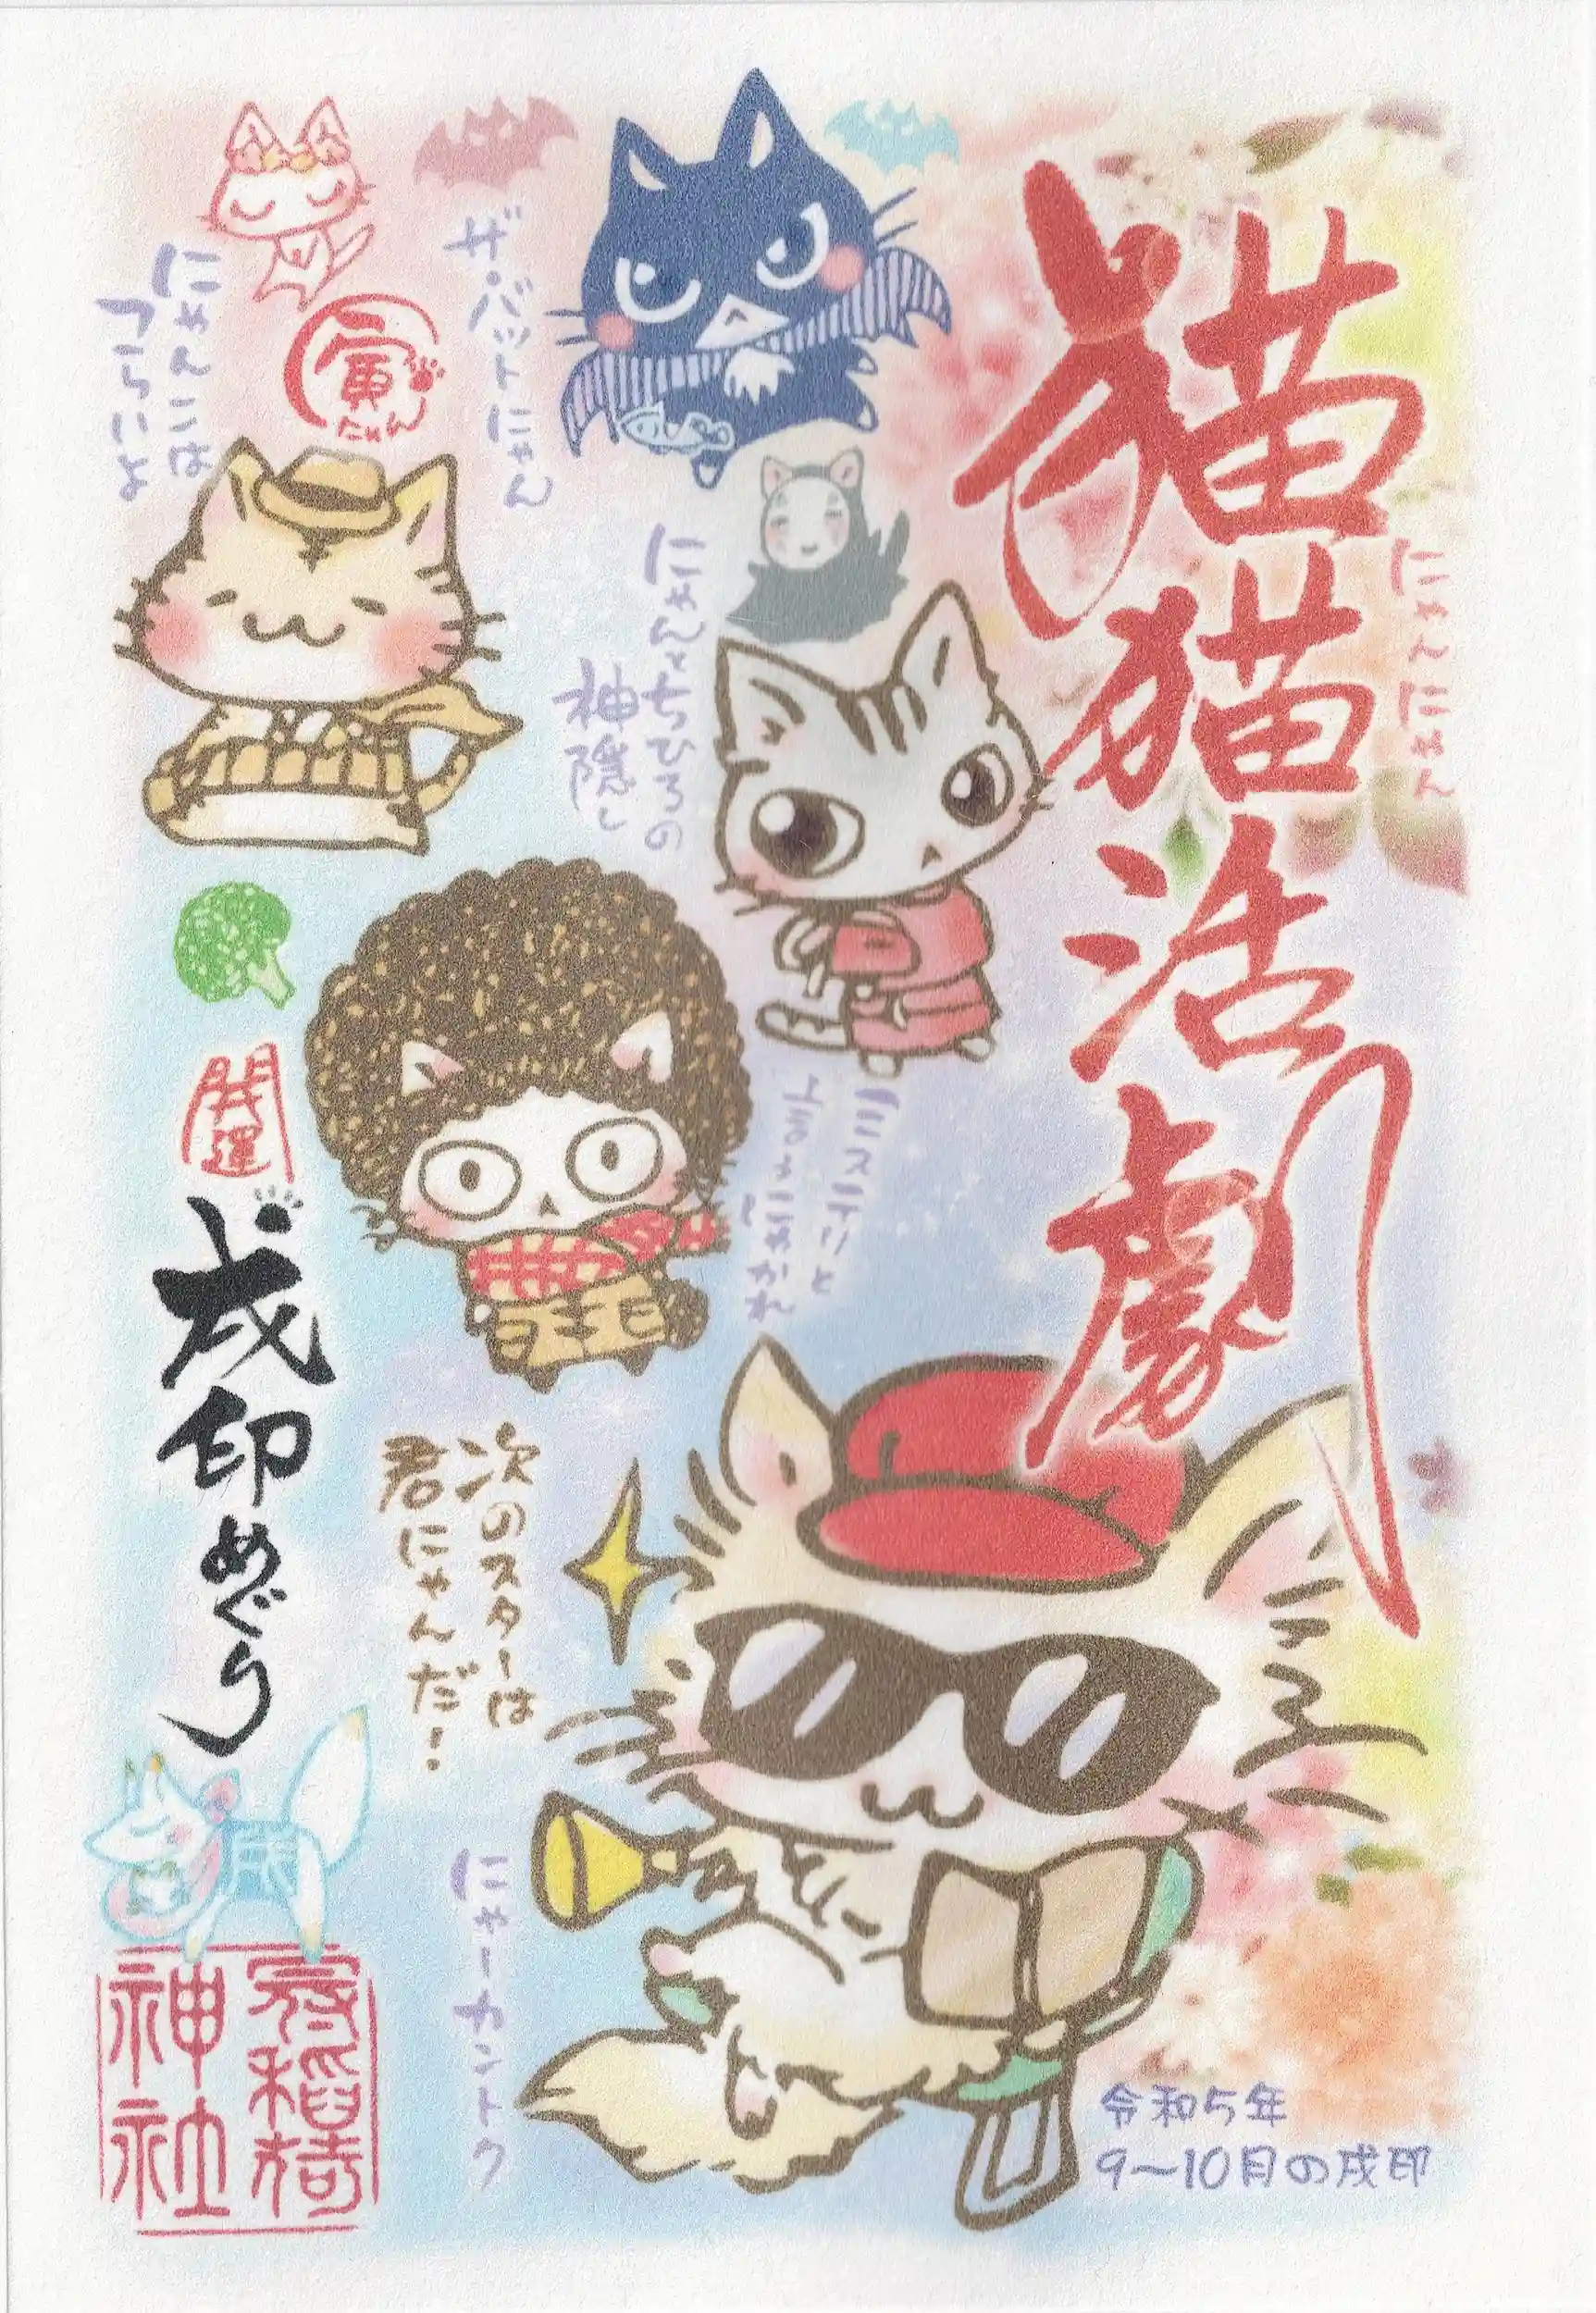 猫猫活劇
にゃんにゃん
ザ・バットにゃん
にゃんこは
つらいよ
寅にゃん
にゃんちひろの
神隠し
ミスターにと
開運
戌印めぐり
次のスターは
君にゃんだ!
にゃーカントク
令和5年
9〜10月の戌印
神社